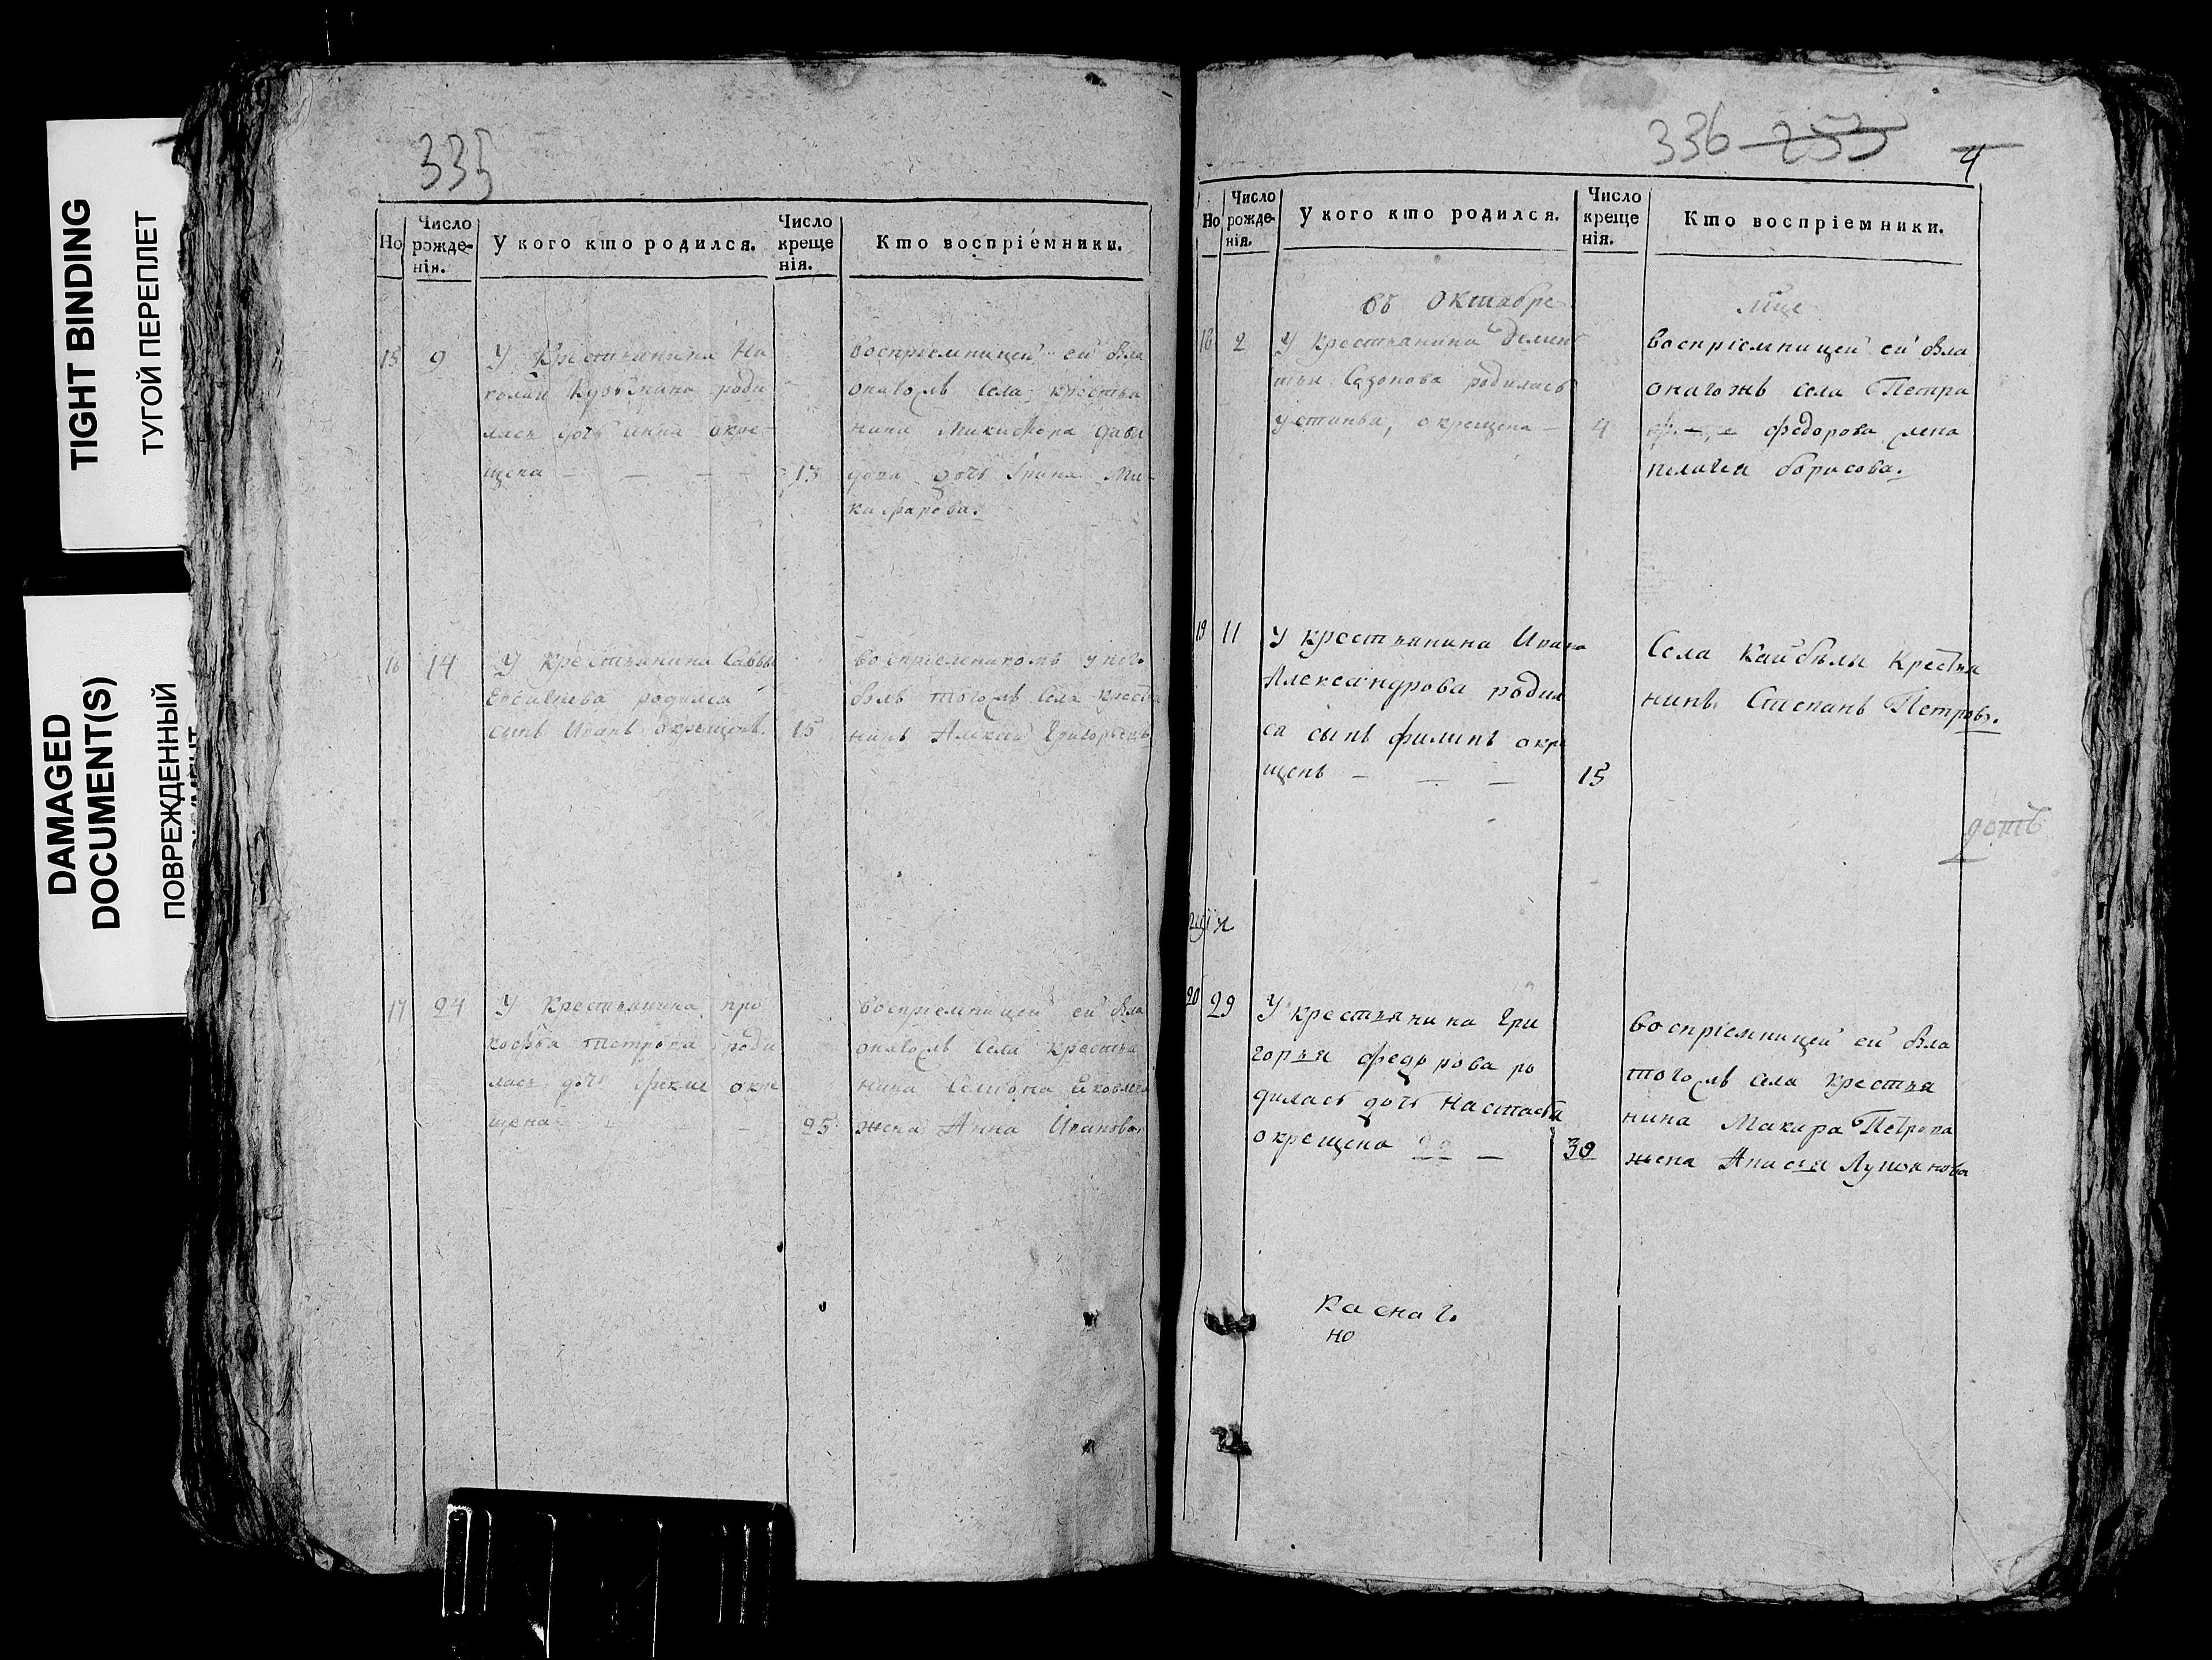 TIGHT BINDING
ТУГОЙ ПЕРЕПЛЕТ
DAMAGED
DOCUMENT(S)
ПОВРЕЖДЕННЫЙ
335
Но
Число рожде- нія.
У кого кто родился.
Число креще нія.
Кто воспріемники.
15 9
У Крестьянина Ни
колаи родилась
лась дочь Анна окре-
щена — — — — 13
воспріемницей ей была
онагожъ села крестья
нина Микифора Давы
дова дочь Ірина Ми-
кифарова.
16 14
У крестьянина Саввы
родился
сынъ Иванъ окрещенъ. 15
воспріемникомъ у него
былъ тогожъ села кресть
нинъ Алексей Григорьевъ
17 24
У крестьянина про
кофья Петрова роди
лась дочь фекла окре
щена — — 25
воспріемницей ей была
онагожъ села крестья
нина Семиона Ековлева
жена Анна Иванова
336 253
4
Но
Число рожде- нія.
У кого кто родился.
Число креще нія.
Кто воспріемники.
въ Октабре
мце
18 2
У крестьянина Демен
тьи Сазонова родилась
устинья, окрещена — 4
воспріемницей ей была
онагожъ села Петра
федорова жена
пелагея борисова.
19 11
У крестьянина Ивана
Александрова родил
са сынъ филипъ окре
щенъ — — — 15
Села Кайбелы Крестья
нинъ Степанъ Петровъ.
20 29
У крестьянина Гри
горья федорова ро
дилась дочь Настасья
окрещена — 30
воспріемницей ей была
тогожъ села крестья
нина Макара Петрова
жена Анасья Лукоянова
но